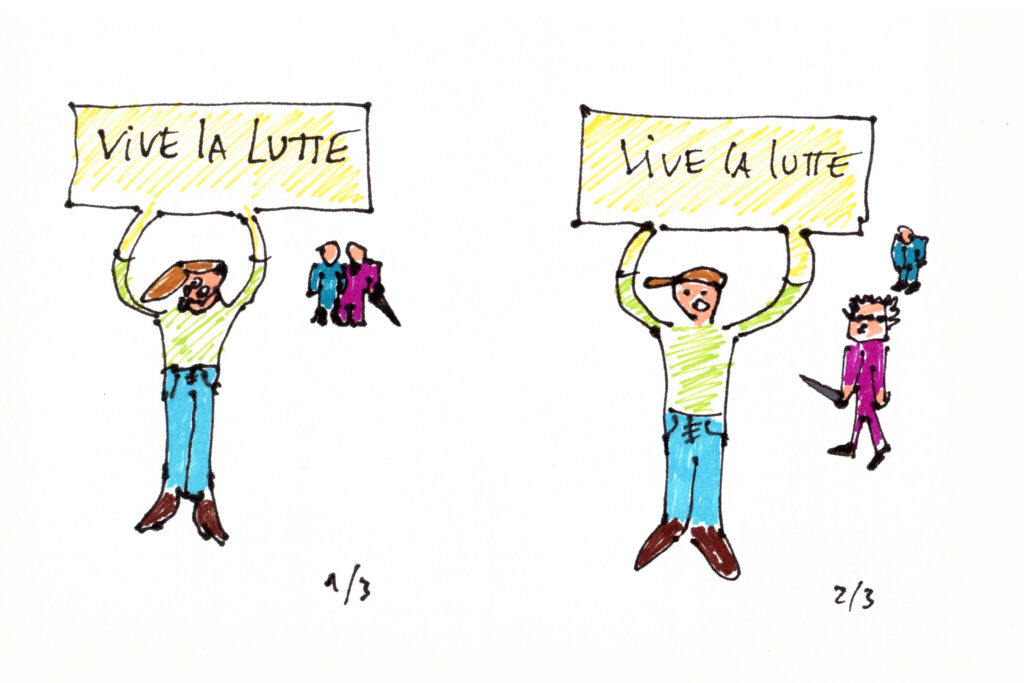 VIVE LA LUTTE
VIVE LA LUTTE
1/3
2/3